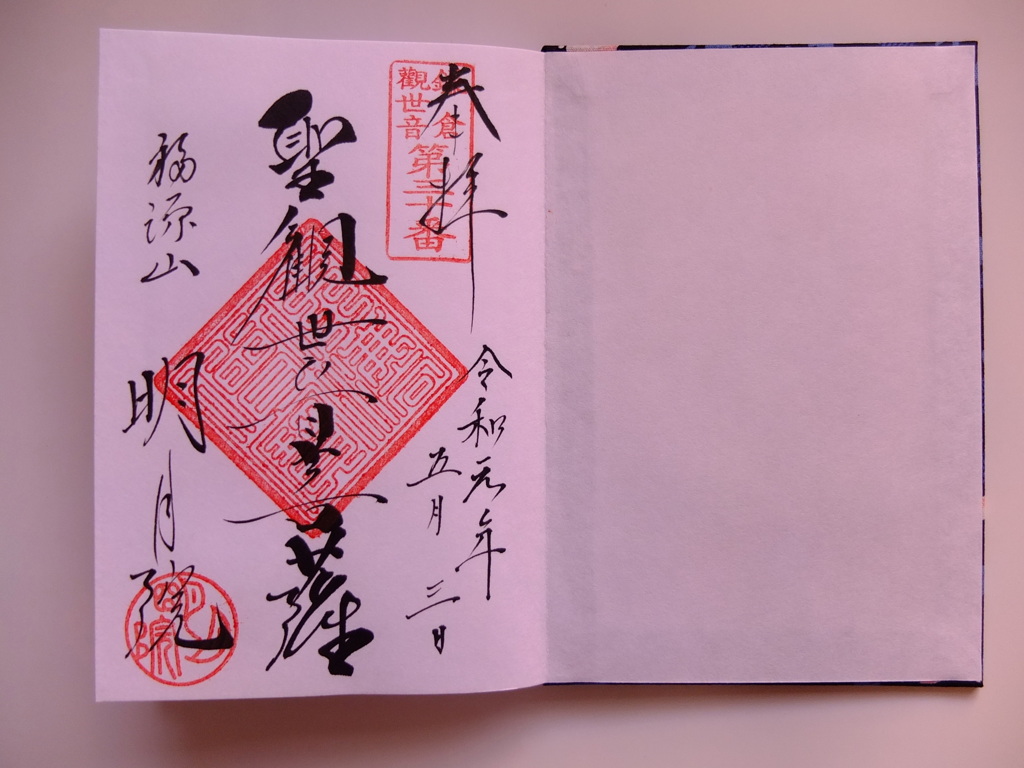 奉拝
鎌倉
觀世音
第三十番
令和元年
五月三日
聖觀世音菩薩
福源山
明月院